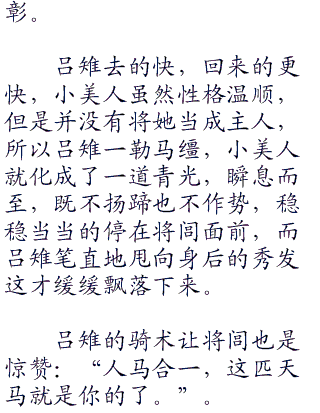 彰。
吕雉去的快，回来的更
快，小美人虽然性格温顺，
但是并没有将她当成主人，
所以吕雉一勒马缰，小美人
就化成了一道青光，瞬息而
至，既不扬蹄也不作势，稳
稳当当的停在将闾面前，而
吕雉笔直地甩向身后的秀发
这才缓缓飘落下来。
吕雉的骑术让将闾也是
惊赞：“人马合一，这匹天
马就是你的了。”。